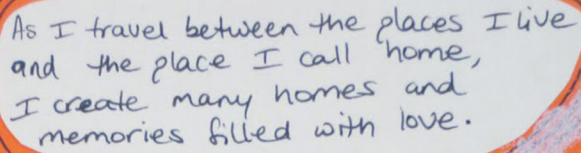 As I travel between the places I live
and the place I call home,
I create many homes and
memories filled with love.